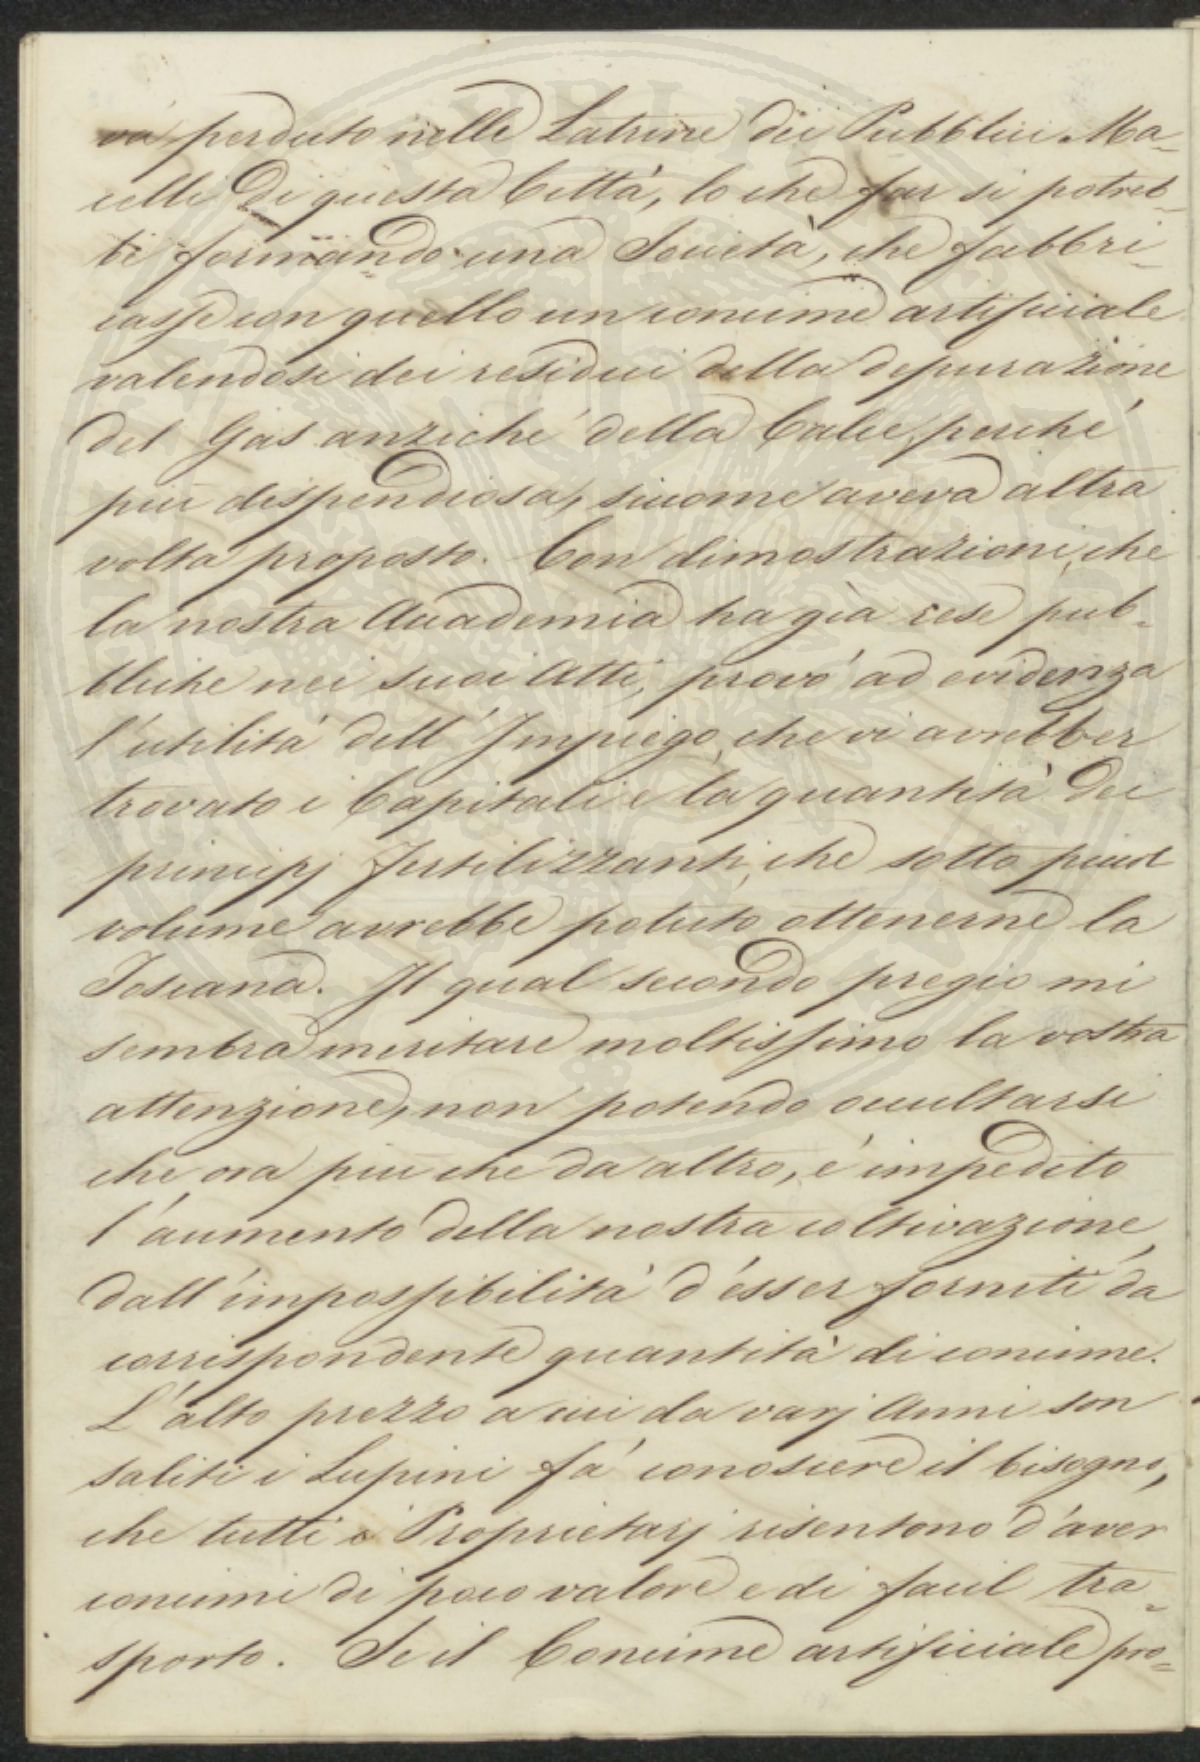 va perduto nelle Latrine dei Pubblici Ma-
celli di questa Città, lo che far si potreb-
be formando una Società, che fabbri-
casse con quello un concime artificiale
valendosi dei residui della depurazione
del Gas anziché della Calce, perché
più dispendiosa, siccome aveva altra
volta proposto. Con dimostrazioni, che
la nostra Accademia ha già rese pub-
bliche nei suoi Atti, provò ad evidenza
l'utilità dell'Impiego, che vi avrebber
trovato i Capitali e la quantità dei
principj fertilizzanti, che sotto picciol
volume avrebbe potuto ottenerne la
Toscana. Il qual secondo pregio mi
sembra meritare moltissimo la vostra
attenzione, non potendo occultarsi
che ora più che da altro, è impedito
l'aumento della nostra coltivazione,
dall'impossibilità d'esser forniti da
corrispondente quantità di concime.
L'alto prezzo a cui da varj Anni son
saliti i Lupini fà conoscere il bisogno,
che tutti i Proprietarj risentono d'aver
concimi di poco valore e di facil tra-
sporto. Se il Concime artificiale pro-